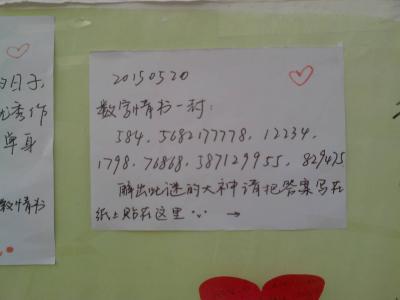 的日子,
优秀作
单身
数情书
20150520
数字情书一封:
584, 5682177778, 12234,
1798, 76868, 587129955, 829475
解出此谜的大神请把答案写在
纸上贴在这里… →